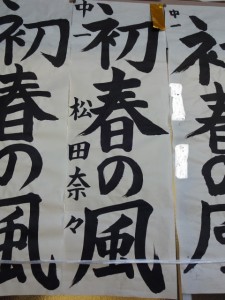 中一
初春の風
中一
初春の風
松田奈々
初春の風